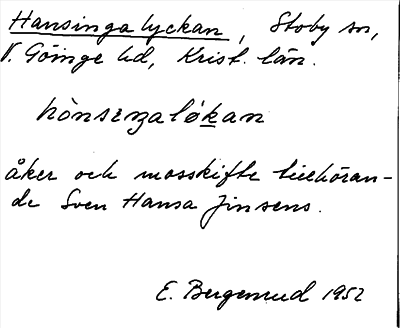 Hansinga lyckan, Stoby sn,
V. Göinge hd, Krist. län.
hònsıŋaløkan
åker och mosskifte tillhöran-
de Sven Hansa Jinsens.
E. Bergenrud 1952